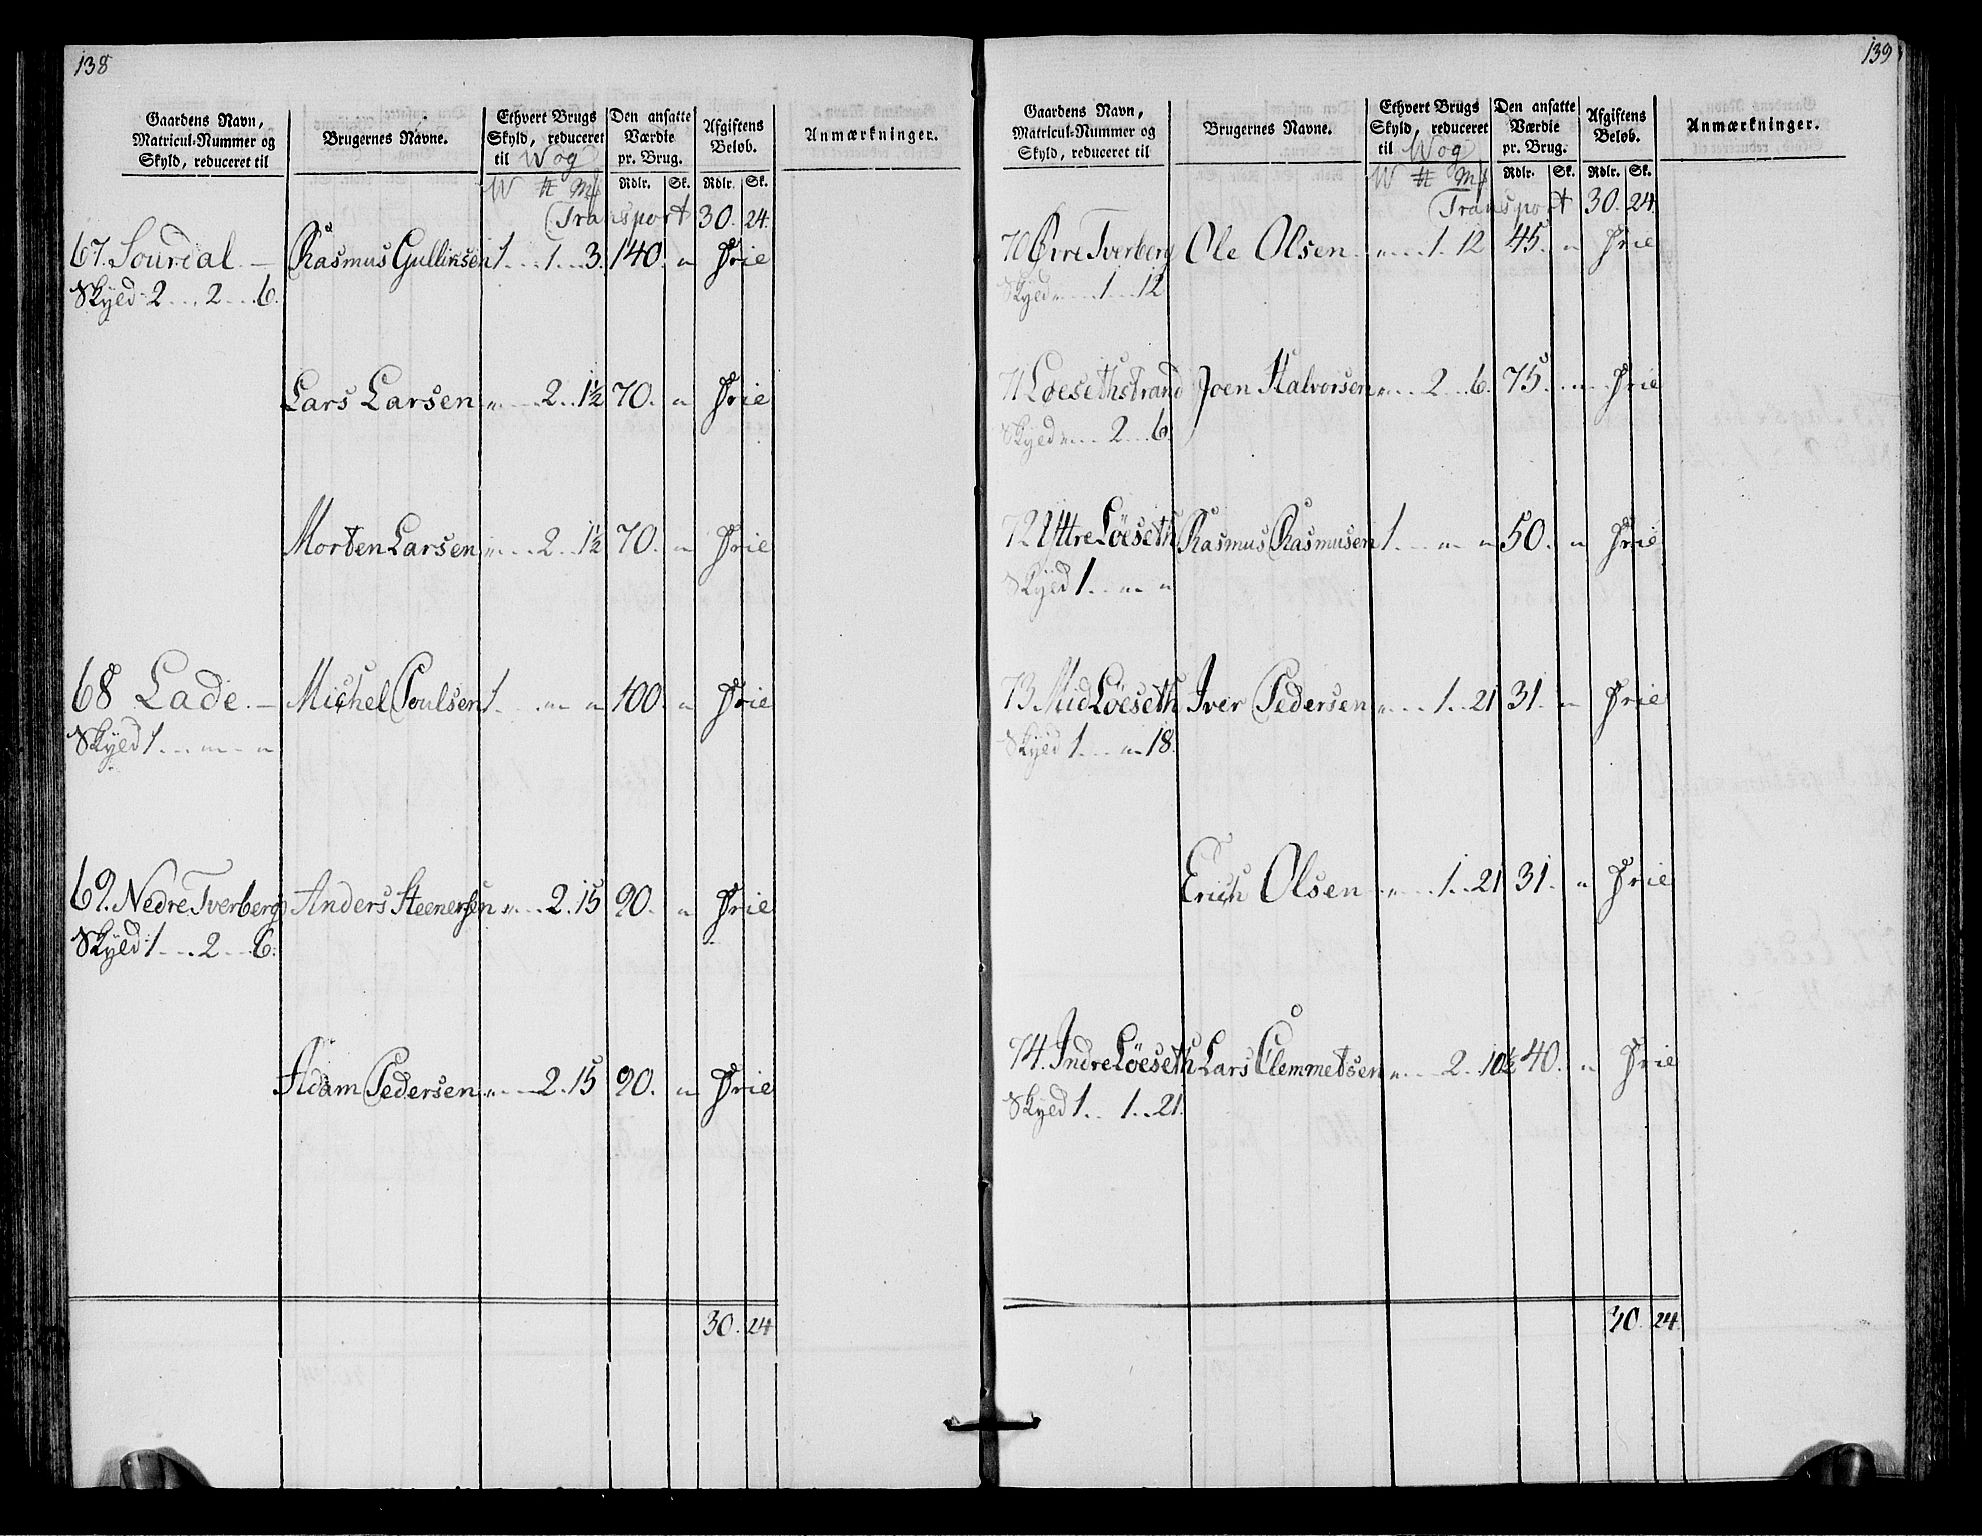 138
Gaardens Navn, Matricul-Nummer og Skyld, reduceret til
Brugernes Navne.
Ethvert Brugs Skyld, reduceret til Wog
Den ansatte Værdie pr. Brug.
Afgiftens Beløb.
Anmærkninger.
W # Mf Rdlr. Sk. Rdlr. Sk.
Transport 30. 24.
67. Sourdal. — Rasmus Gullinsen 1...1...3. 140. " Frie
Skyld 2...2...6.
Lars Larsen "...2..1½ 70. " Frie
Morten Larsen "...2..1½ 70. " Frie
68 Lade. — Michel Poulsen 1..."." 100. " Frie
Skyld 1..."."
69. Nedre Tverberg Anders Steenersen "...2.15 90. " Frie
Skyld 1...2...6.
Adam Pedersen "...2.15 90. " Frie
30. 24
139
Gaardens Navn, Matricul-Nummer og Skyld, reduceret til
Brugernes Navne.
Ethvert Brugs Skyld, reduceret til Wog
Den ansatte Værdie pr. Brug.
Afgiftens Beløb.
Anmærkninger.
W # Mf Rdlr. Sk. Rdlr. Sk.
Transport 30. 24.
70 Øvre Tverberg Ole Olsen "...1.12 45. " Frie
Skyld "...1...12
71 Løesethstrand Joen Halvorsen "...2..6. 75. " Frie
Skyld "...2...6.
72 Ÿttre Løeseth Rasmus Rasmusen 1...".." 50. " Frie
Skyld 1...".."
73. Mid Løeseth Iver Pedersen "...1..21 31. " Frie
Skyld 1..."..18.
Erich Olsen "...1..21 31. " Frie
74. Indre Løeseth Lars Clemmetsen "...2.10½ 40. " Frie
Skyld 1...1..21.
30. 24.